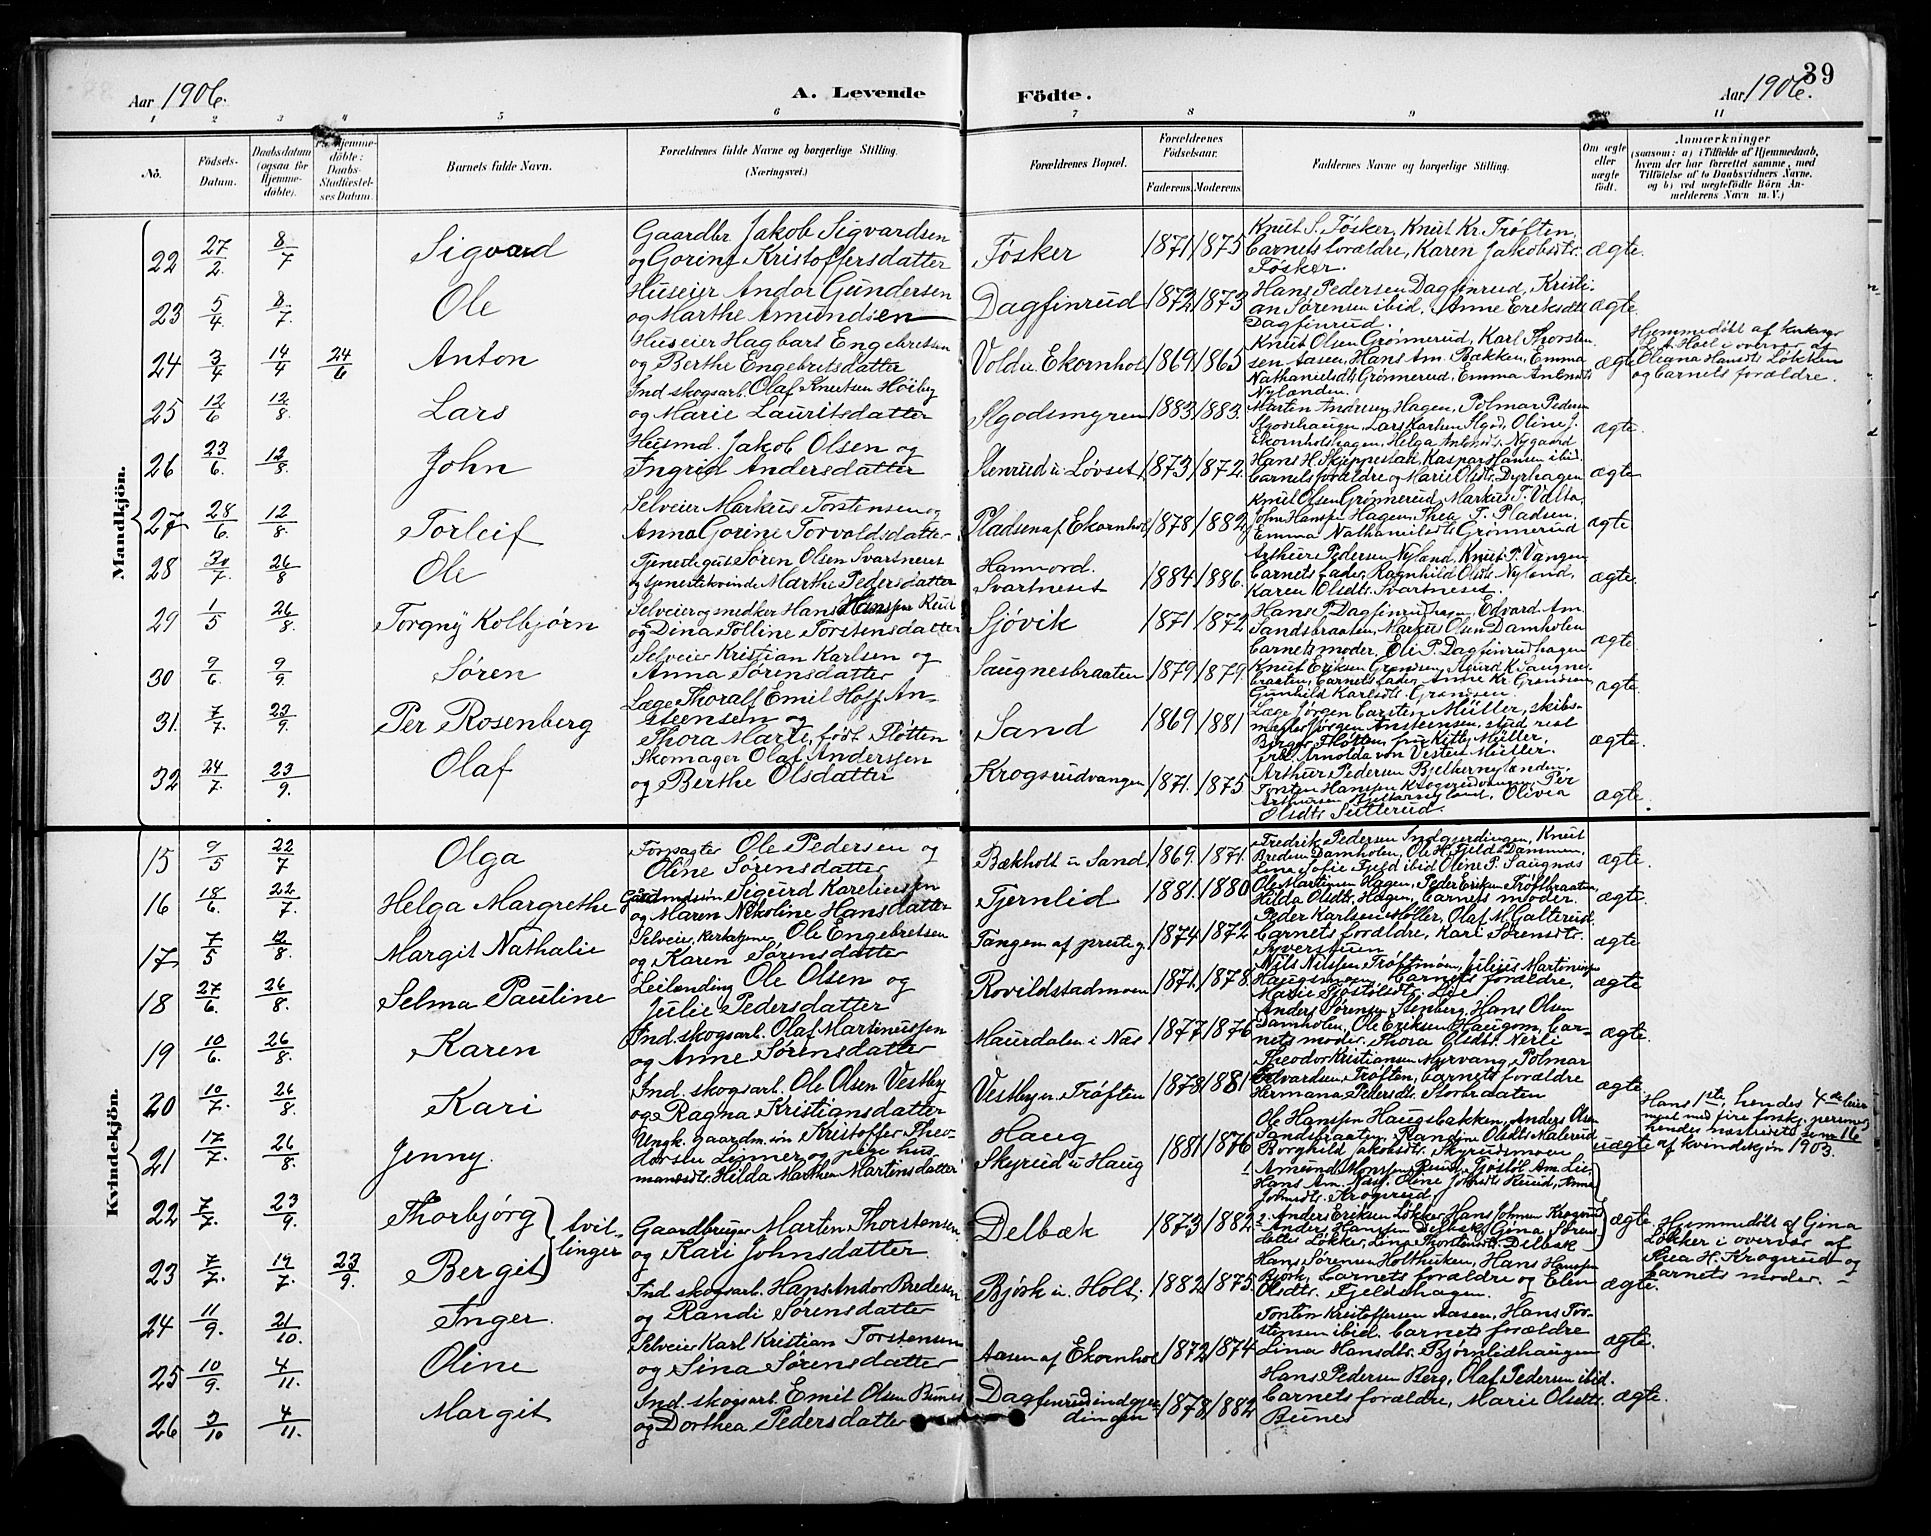 39
Aar 1906.
A. Levende
Födte.
Aar 1906.
1 2 3 4 5 6 7 8 9 11
No.
Födsels-Datum.
Daabsdatum (ogsaa for Hjemmedöbte).
döbte: Daabs-Stadfæstelses Datum.
Barnets fulde Navn.
Forældrenes fulde Navne og borgerlige Stilling.
(Næringsvei.)
Forældrenes Bopæl.
Forældrenes Födselsaar.
Faderens.
Moderens.
Faddernes Navne og borgerlige Stilling.
Om ægte eller uægte födt.
Anmærkninger
(saasom: a) i Tilfælde af Hjemmedaab, hvem der har forrettet samme, med Tilföielse af to Daabsvidners Navne, og b) ved uægtefödte Börn Anmelderens Navn m. V.)
Mandkjön.
22 27/2 8/7 Sigvard Gaardbr Jakob Sigvardsen og Gorine Kristoffersdatter Føsker 1871 1875 Knut S. Føsker, Knut Kr. Trøften, barnets forældre, Karen Jakobsdtr. Føsker. ægte
23 5/4 8/7 Ole Huseier Andor Gundersen og Marthe Amundsen Dagfinrud 1872 1873 Hans Pedersen Dagfinrud, Kristian Sørensen ibid, Anne Eriksdtr Dagfinrud. ægte
24 3/4 14/4 24/6 Anton Huseier Hagbart Engebretsen og Berthe Engebretsdatter Volden Ekornhol 1869 1865 Knut Olsen Grønnerud, Karl Thorstensen Aasen, Hans Am. Bækken, Emma Nathanielsdtr Grønnerud, Emma Antonsdtr Nylænden. ægte Hjemmedöbt af kirkesgr L. A. Hoel i overvær af Oleana Hansdtr Løkken og barnets forældre.
25 12/6 12/8 Lars Ind. skogsarb. Olaf Knutsen Høiby og Marie Lauritsdatter Algodsmyren 1883 1883 Martin Andresen Hagen, Polmar Pedersen ægte.
26 23/6 12/8 John Husmd. Jakob Olsen og Ingrid Andersdatter Stenrud u Løvset 1873 1872 Hans H. Skjeppestak, Kaspar Hansen ibid. barnets forældre og Marie Olsdtr. Dyrhagen ægte
27 28/6 12/8 Torleif Selveier Markus Torstensen og Anna Gorine Torvaldsdatter Pladsen af Ekornhol 1878 1882 Knut Olsen Grønnerud, Markus T. Volta, John Hansen Hagen, Thea T. Pladsen, Emma Nathanielsdtr Grønnerud ægte
28 30/7 26/8 Ole Tjenestegut Søren Olsen Svartneset og tjenestekvinde Marthe Pedersdatter Hannord. Svartneset 1884 1886 Arthur Pedersen Nyland, Knut P. Vangen barnets fader, Ragnhild Olsdtr. Nyland, Karen Olsdtr. Svartneset. ægte.
29 1/5 26/8 Torgny Kolbjørn Selveier og snedker Hans Hansen Ruud og Dina Polline Torstensdatter Sjövik 1871 1872 Hans P. Dagfinrudhagen, Edvard Am. Sandsbraaten, Markus Olsen Damholen barnets moder, Eli P. Dagfinrudhagen ægte.
30 9/6 9/9 Søren Selveier Kristian Karlsen og Anna Sørensdatter Saugnesbraaten 1879 1879 Knut Eriksen Grandsen, Sigurd K Saugnebraaten, barnets fader, Anne Kr. Grandsen, Gunhild Karlsdtr. Grandsen. ægte
31. 7/7 23/9 Per Rosenberg Læge Thoralf Emil Hoff Ansteensen og Thora Marie, født Fløtten Sand 1869 1881 Læge Jørgen Carsten Müller, skibsmegler Jørgen Ansteensen, stud. real Birger Fløtten, fru Kitty Müller, frk. Arnolda von Vesten Müller. ægte
32 24/7 23/9 Olaf Skomager Olaf Anderssen og Berthe Olsdatter Krogsrudvangen 1871 1875 Arthur Pedersen Bjelkernylænden, Torsten Hansen Krogsrudvangen, Per Arthursen Bjelkernyland, Olivia Olsdtr Sætterud. ægte
Kvindekjön.
15 9/5 22/7 Olga Forpagter Ole Pedersen og Oline Sørensdatter Bækholt u Sand 1869 1871 Fredrik Pedersen Indgjerdingen, Knut Bredsen Damholen, Ole H. Fjeld Dammen, Lina Sofie Fjeld ibid Oline P. Saugnas ægte.
16 18/6 22/7 Helga Margrethe Gaardmdsøn Sigurd Kareliussen og Maren Nikoline Hansdatter Tjernlid 1881 1880 Ole Martinsen Hagen, Peder Eriksen Trøftbraaten, Hilda Olsdtr. Hagen, barnets moder. ægte
17 7/5 12/8 Margit Nathalie Selveier, Kirketjener Ole Engebretsen og Karen Sørensdatter Tangen af prestg. 1874 1872 Peder Karlsen Møller, Olaf M. Galterud, barnets forældre, Kari Sørensdtr. Syverstuen ægte
18 27/6 26/8 Selma Pauline Leilending Ole Olsen og Julie Pedersdatter Rovildstadmoen 1871 1878 Nils Nilssen Trøftmoen, Julius Martinussen Haugsmoen, barnets forældre, Marie ægte
19 10/6 26/8 Karen Ind. skogsarb. Olaf Martinussen og Anne Sørensdatter Maurdalen i Næs 1877 1876 Anders Sørensen Stenberg, Hans Olsen Damholen, Ole Eriksen Haugom, barnets moder. Thora Olsdtr. Nerli ægte.
20 10/7 26/8 Kari Ind. skogsarb. Ole Olsen Vestby og Ragna Kristiansdatter Vestbyen Trøften 1878 1881 Theodor Kristiansen Myrvang, Polmar Edvardsen Trøften, barnets forældre Hermana Pedersdtr. Storbraaten ægte
21 17/7 26/8 Jenny. Ungk. gaardm.søn Kristoffer Theodorsen og pige husmansdtr. Hilda Marthea Martinsdatter Haug Skyrud u Haug 1881 1876 Ole Hanssen Haugsbakken, Anders Olsen Sandsbraaten, Olsdtr. Borghild Jakobsdtr. Skyrudsmoen uægte Hans 1ste, hendes 4de af kvindekjön 1903.
22 7/7 23/9 Thorbjørg } tvillinger Gaardbruger Martin Thorstensen og Kari Johnsdatter. Delbæk 1873 1882 Amund Monssen Ruud, Hans Am. Næs, Oline Johnsdtr Ruud, Anne Johnsdtr. Krogsrud. ægte.
23 7/7 19/7 23/9 Bergit 2. Anders Eriksen Løkker, Hans Johnsen Krogsrud, Anders Hanssen Delbæk, Gina Sørensdatter Løkker, Lina Thorstensdtr. Delbæk Hjemmedöbt af Gina Løkker i overvær af Thea H. Krogsrud og barnets moder.
24 11/9 21/10 Inger. Ind. skogsarb. Hans Andor Bredesen og Randi Sørensdatter Bjørk u. Holt. 1882 1875 Hans Sørensen Holtbækken, Hans Hansen Bjørk, barnets forældre og Elen Olsdtr. Fjeldshagen. ægte.
25 10/9 4/11 Oline Selveier Karl Kristian Torstensen og Sina Sørensdatter Aasen af Ekornhol 1872 1874 Torsten Kristoffersen Aasen, Hans Torstensen ibid. barnets forældre Lina Hansdtr. Bjørnlidhaugen ægte.
26 3/10 4/11 Margit Ind. skogsarb. Emil Olsen Bunes og Dorthea Pedersdatter Dagfinrudindgjerdingen 1878 1882 Hans Pedersen Berg, Olaf Pedersen ibid. barnets forældre, Marie Olsdtr. Bunes ægte.